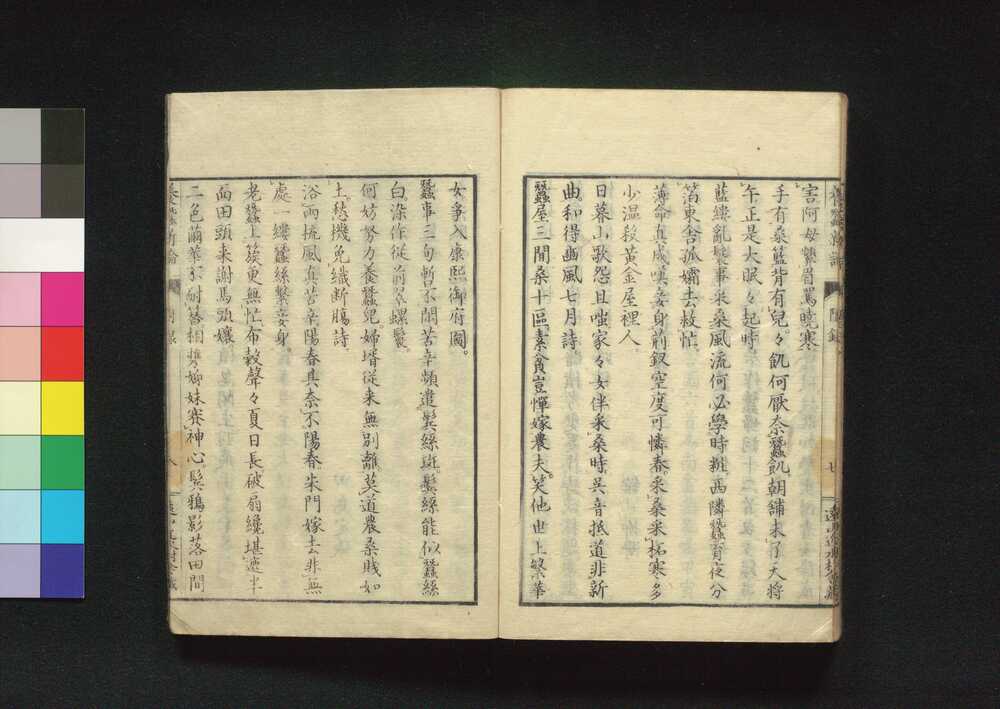 害阿母顰眉罵曉寒
手有桑籃背有兒々飢何厭奈蠶飢朝舖未了天將
午正是大眠々起時
藍縷亂鬟事采桑風流何必學時粧西隣蠶賣夜分
箔東舍孤孀去救忙
薄命真成嘆妾身荊釵空度可憐春采桑采柘寒多
少温殺黄金屋裡人
日暮山歌怨且嗤家々女伴采桑時呉音抵道非新
曲和得豳風七月詩
蠶屋三間桑十區素貪豈憚嫁農夫笑他世上繁華
女爭入康熙御府圖
蠶事三旬暫不閑苦辛頻遣鬢絲斑鬢絲能似蠶絲
白染作從前翠螺鬟
何妨努力養蠶兒婦壻從来無別離莫道農桑賎如
土愁機免織断膓詩
浴雨梳風真苦辛陽春具奈不陽春朱門嫁去非無
處一縷蠶絲繋妾身
老蠶上簇更無忙布穀聲々夏日長破扇纔堪遮半
面田頭来謝馬頭孃
二色繭華 耐簪相携姉妹賽神心鬢鴉影落田間
養蠶新論
附録
七
八